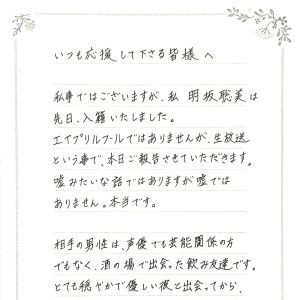 いつも応援して下さる皆様へ
私事ではございますが、私 明坂聡美は
先日、入籍いたしました。
エイプリルフールではありませんが、生放送
という事で、本日ご報告させていただきます。
嘘みたいな話ではありますが嘘では
ありません。本当です。
相手の男性は、声優でも芸能関係の方
でもなく、酒の場で出会った飲み友達です。
とても穏やかで優しい彼と出会ってから、